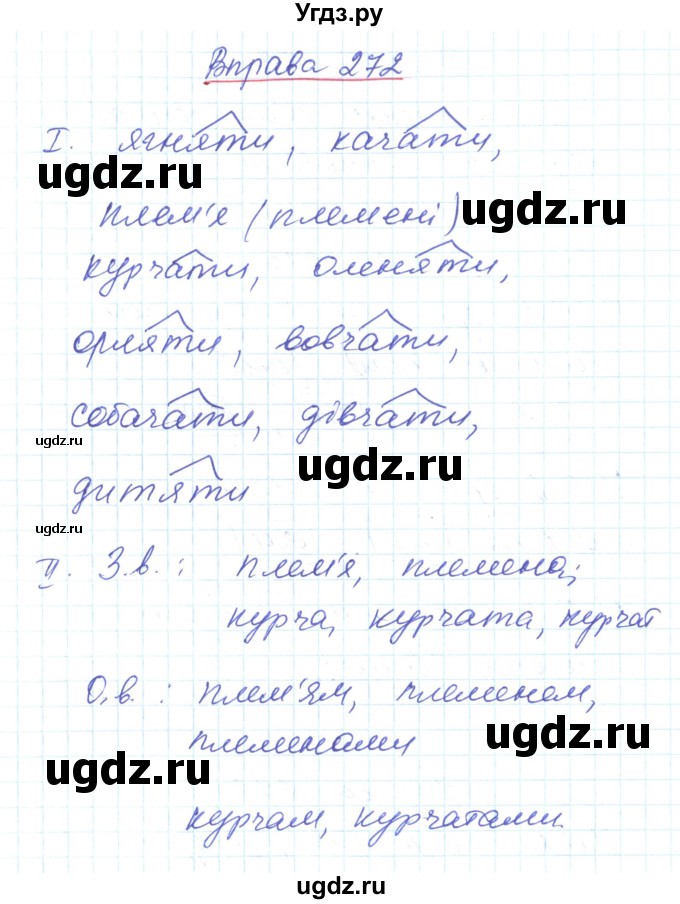 Угдз.ру
Вправа 272
I. ягняти, качати,
ugdz.ru
плем'я (племені) ugdz.ru
курчати, оленяти,
орляти, вовчати,
собачати, дівчати,
ugdz.ru
ugdz.ru
дитяти
ugdz.ru
II. З.в.: плем'я, племена;
курча, курчата, курчат
О.в.: плем'ям, племенем,
ugdz.ru
племенами
ugdz.ru
курчам, курчатами.
ugdz.ru